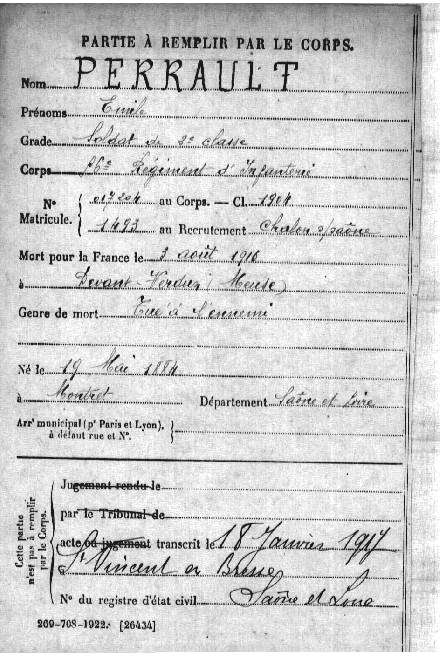 PARTIE À REMPLIR PAR LE CORPS.
Nom PERRAULT
Prénoms Emile
Grade Soldat de 2e classe
Corps 56e Régiment d'Infanterie
N° Matricule. { 017204 au Corps. — Cl. 1904
1493 au Recrutement Chalon s/Saône
Mort pour la France le 3 août 1916
à Devant Verdun (Meuse)
Genre de mort Tué à l'ennemi
Né le 19 Mai 1884
à Montret Département Saône et Loire
Arrt municipal (pr Paris et Lyon), à défaut rue et N°. }
Cette partie n'est pas à remplir par le Corps.
Jugement rendu le
par le Tribunal de
acte ou jugement transcrit le 18 Janvier 1917
St Vincent en Bresse
N° du registre d'état civil Saône et Loire
269-708-1922. [26434]